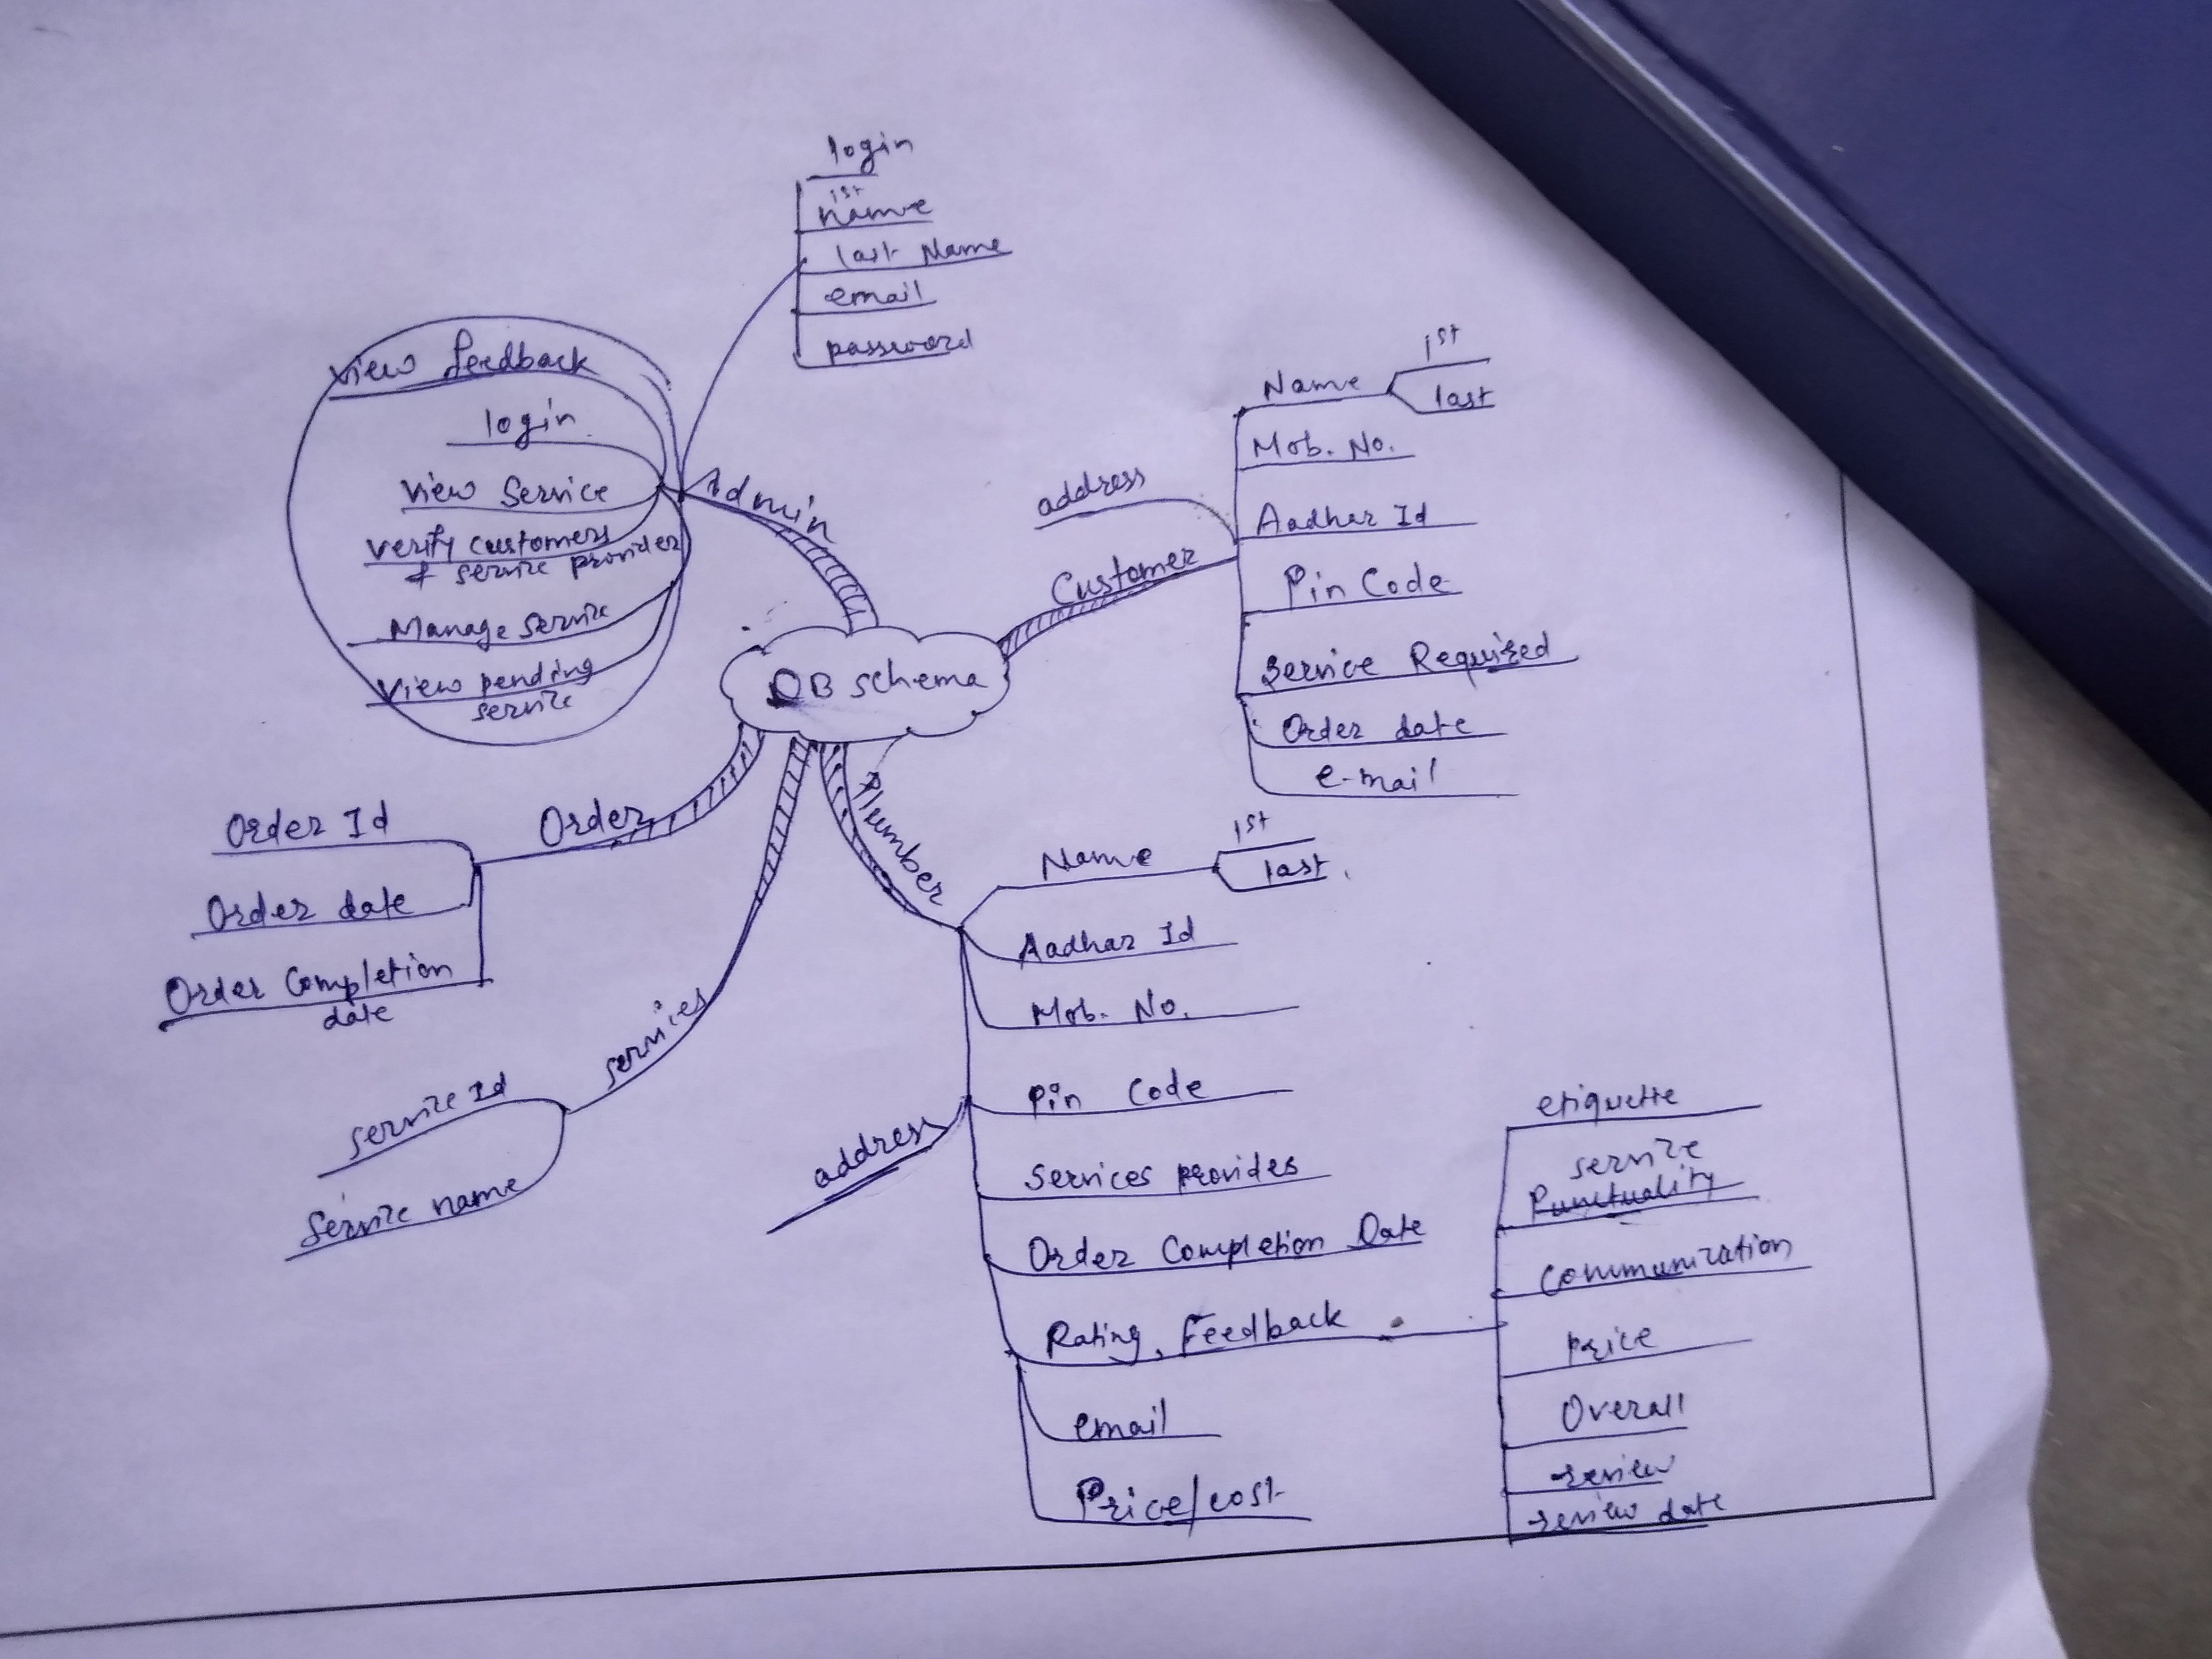 login
1st
name
last Name
email
password
View feedback
login
View Service
Verify customers
& service provider
Manage service
View pending
service
Admin
DB schema
Customer
address
Name
1st
last
Mob. No.
Aadhar Id
Pin Code
Service Required
Order date
e-mail
Order
Order Id
Order date
Order Completion
date
services
service Id
Service name
Plumber
Name
1st
last
Aadhar Id
Mob. No.
Pin Code
address
Services provides
Order Completion Date
Rating, Feedback
email
Price/cost
etiquette
service
Punctuality
Communication
Price
Overall
review
review date